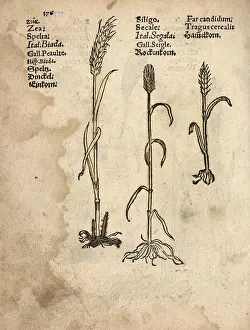 176
Zea:
Spelta:
Ital. Biada.
Gall. Peaulte.
Spelt:
Dinckel:
Einkorn:
Siligo.
Secale:
Ital. Segala:
Gall. Seigle.
Rockenkorn:
Far candidum:
Tragus cerealis